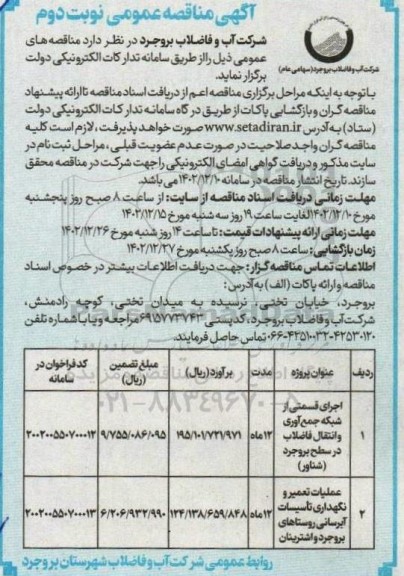 آگهی مناقصه عمومی نوبت دوم
شرکت آب و فاضلاب بروجرد (سهامی عام)
شرکت آب و فاضلاب بروجرد در نظر دارد مناقصه های
عمومی ذیل را از طریق سامانه تدارکات الکترونیکی دولت
برگزار نماید.
با توجه به اینکه مراحل برگزاری مناقصه اعم از دریافت اسناد مناقصه تا ارائه پیشنهاد
مناقصه گران و بازگشایی پاکات از طریق درگاه سامانه تدارکات الکترونیکی دولت
(ستاد) به آدرس www.setadiran.ir صورت خواهد پذیرفت، لازم است کلیه
مناقصه گران واجد صلاحیت در صورت عدم عضویت قبلی، مراحل ثبت نام در
سایت مذکور و دریافت گواهی امضای الکترونیکی را جهت شرکت در مناقصه محقق
سازند. تاریخ انتشار مناقصه در سامانه ۱۴۰۲/۱۲/۱۰ می باشد.
مهلت زمانی دریافت اسناد مناقصه از سایت: از ساعت ۸ صبح روز پنجشنبه
مورخ ۱۴۰۲/۱۲/۱۰ لغایت ساعت ۱۹ روز سه شنبه مورخ ۱۴۰۲/۱۲/۱۵
مهلت زمانی ارائه پیشنهادات قیمت: تا ساعت ۱۴ روز شنبه مورخ ۱۴۰۲/۱۲/۲۶
زمان بازگشایی: ساعت ۸ صبح روز یکشنبه مورخ ۱۴۰۲/۱۲/۲۷
اطلاعات تماس مناقصه گزار: جهت دریافت اطلاعات بیشتر در خصوص اسناد
مناقصه و ارائه پاکات (الف) به آدرس:
بروجرد، خیابان تختی، نرسیده به میدان تختی، کوچه رادمنش،
شرکت آب و فاضلاب بروجرد، کدپستی ۶۹۱۵۷۷۳۷۴۳ مراجعه و یا با شماره تلفن
۰۶۶-۴۲۵۱۰۰۳۲-۴۲۵۳۰۱۲۰ تماس حاصل فرمایند.
ردیف عنوان پروژه مدت برآورد (ریال) مبلغ تضمین (ریال) کد فراخوان در سامانه
۱ اجرای قسمتی از شبکه جمع آوری و انتقال فاضلاب در سطح بروجرد (شناور) ۱۲ ماه ۱۹۵/۱۰۱/۷۲۱/۹۷۱ ۹/۷۵۵/۰۸۶/۰۹۵ ۲۰۰۲۰۰۵۵۰۷۰۰۰۱۲
۲ عملیات تعمیر و نگهداری تأسیسات آبرسانی روستاهای بروجرد و اشترینان ۱۲ ماه ۱۲۴/۱۳۸/۶۵۹/۸۴۸ ۶/۲۰۶/۹۳۲/۹۹۰ ۲۰۰۲۰۰۵۵۰۷۰۰۰۱۳
۰۲۱-۸۸۳۴۹۶۷۰-۵
روابط عمومی شرکت آب و فاضلاب شهرستان بروجرد